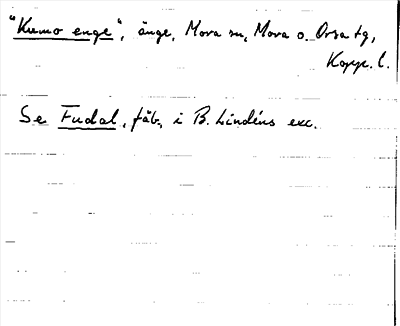 "Kumo enge", änge, Mora sn, Mora o. Orsa tg,
Kopp. l.
Se Fudal, fäb., i B. Lindéns exc.